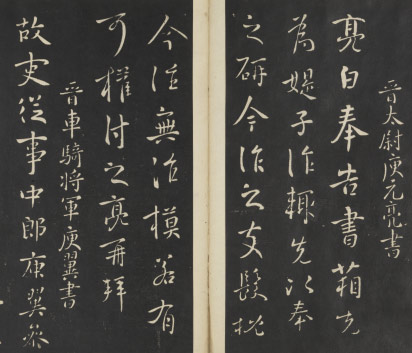 晋太尉庾元亮書
亮白奉告書箱先
為媞子作輒先以奉
之研今作之支髮枕
今往無治模若有
可權付之亮再拜
晋車騎将軍庾翼書
故吏從事中郎庾翼叅